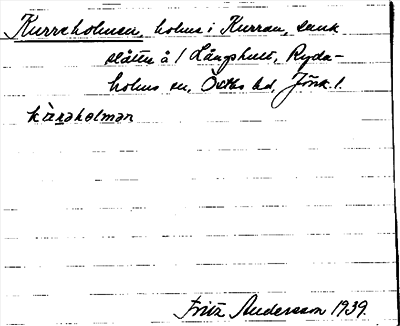 Kurreholmen, holme i Kurran, sank
slåtter å 1 Långhult, Ryda-
holms sn, Östbo hd, Jönk. l.
kùrahɵlmən
Fritz Andersson 1939.